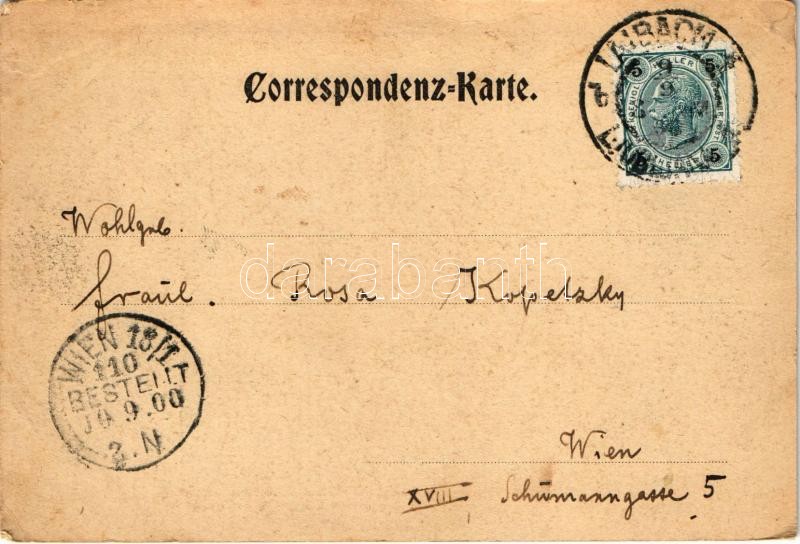 Correspondenz-Karte.
LAIBACH
5 HELLER 5
5 5
Wohlgeb.
Fräul. Rosa Kopetzky
darabanth
WIEN 18/1
110
BESTELLT
10 9.00
2.N
Wien
XVIII Schumanngasse 5